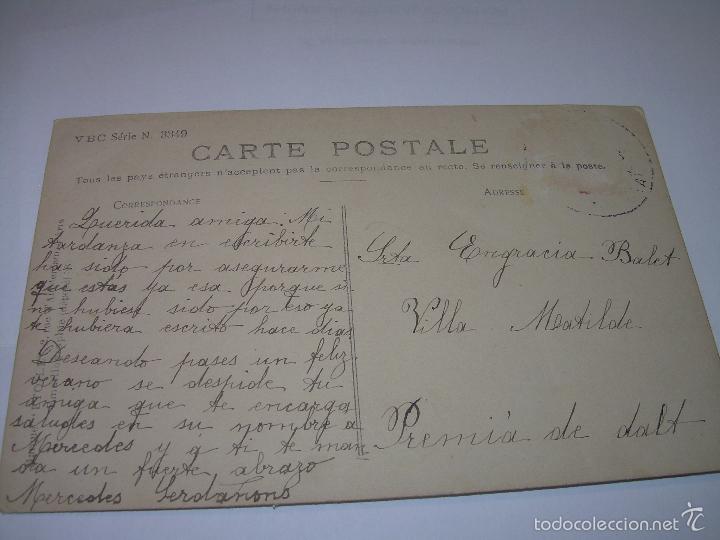 VBC Série N. 3349
CARTE POSTALE
Tous les pays étrangers n'acceptent pas la correspondance au recto. Se renseigner à la poste.
CORRESPONDANCE
ADRESSE
Querida amiga. Mi
tardanza en escribirte
ha sido por asegurarme
que estás ya esa porque si
no hubiese sido por eso ya
te hubiera escrito hace dias
Deseando pases un feliz
verano se despide tu
amiga que te encarga
saludes en su nombre a
Mercedes y a ti te man
da un fuerte abrazo
Mercedes
Srta Engracia Balet
Villa Matilde.
Premiá de dalt
todocoleccion.net